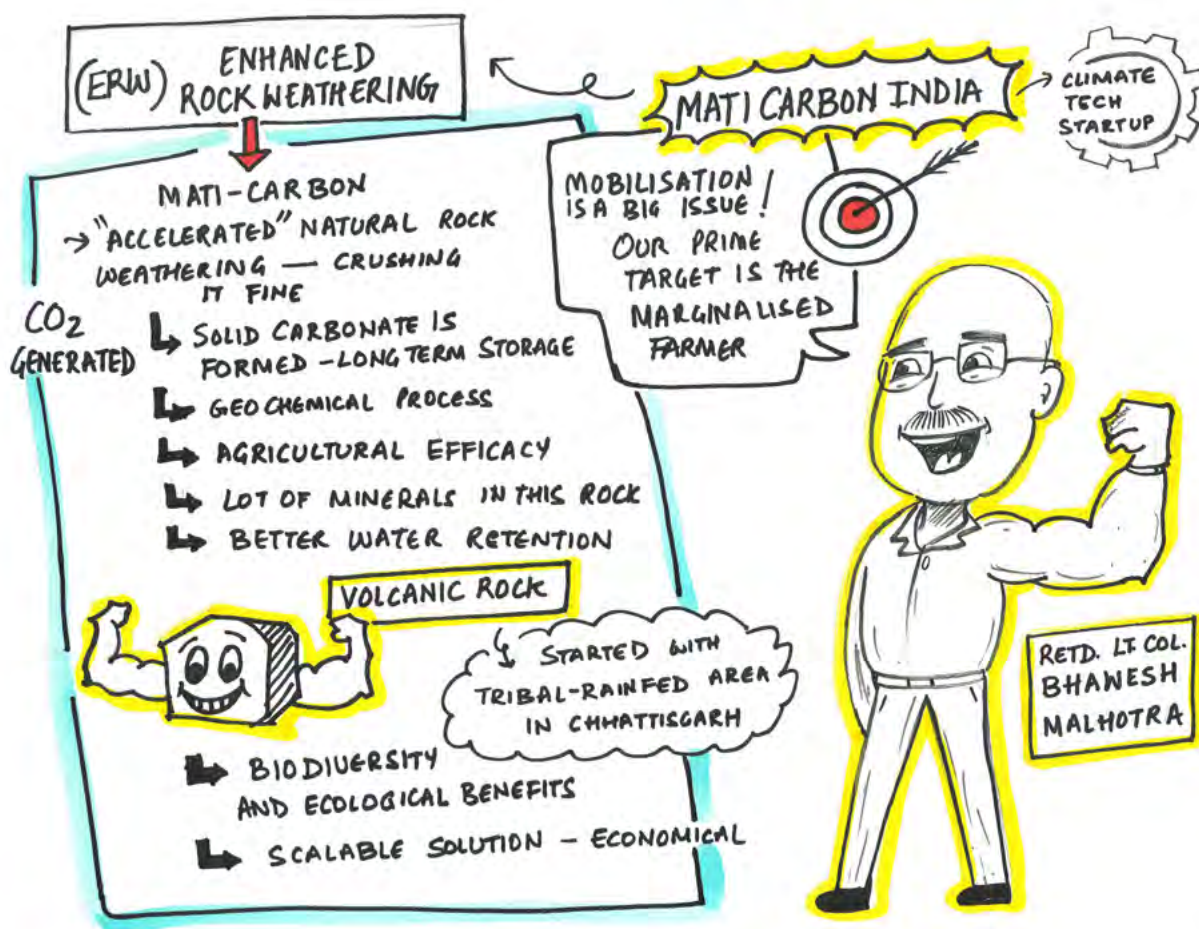 (ERW) ENHANCED
ROCK WEATHERING
MATI CARBON INDIA
CLIMATE
TECH
STARTUP
MATI-CARBON
"ACCELERATED" NATURAL ROCK
WEATHERING — CRUSHING
IT FINE
CO2
GENERATED
SOLID CARBONATE IS
FORMED - LONG TERM STORAGE
GEOCHEMICAL PROCESS
AGRICULTURAL EFFICACY
LOT OF MINERALS IN THIS ROCK
BETTER WATER RETENTION
VOLCANIC ROCK
STARTED WITH
TRIBAL-RAINFED AREA
IN CHHATTISGARH
BIODIVERSITY
AND ECOLOGICAL BENEFITS
SCALABLE SOLUTION - ECONOMICAL
MOBILISATION
IS A BIG ISSUE!
OUR PRIME
TARGET IS THE
MARGINALISED
FARMER
RETD. LT. COL.
BHAWESH
MALHOTRA